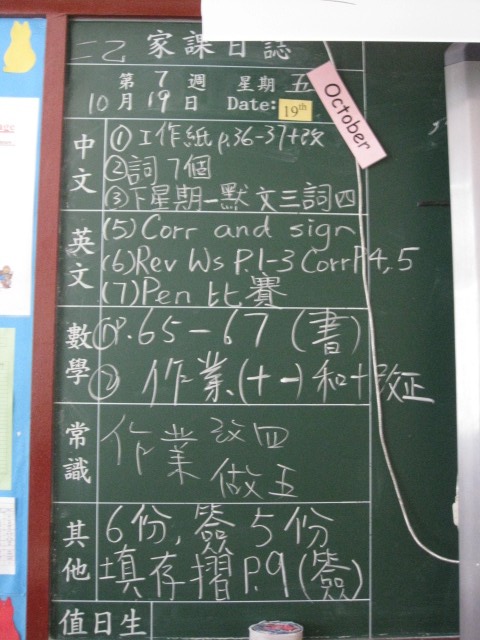 二乙 家課日誌
第7週 星期五
10月19日 Date: 19th
October
中文
① 工作紙 p.36-37+改
② 詞7個
③ 下星期一默文三詞四
英文
(5) Corr and sign
(6) Rev Ws P.1-3 Corr P.4,5
(7) Pen 比賽
數學
① P.65-67 (書)
② 作業(十一)和十改正
常識
作業改四
做五
其他
6份,簽5份
填存摺P.9(簽)
值日生